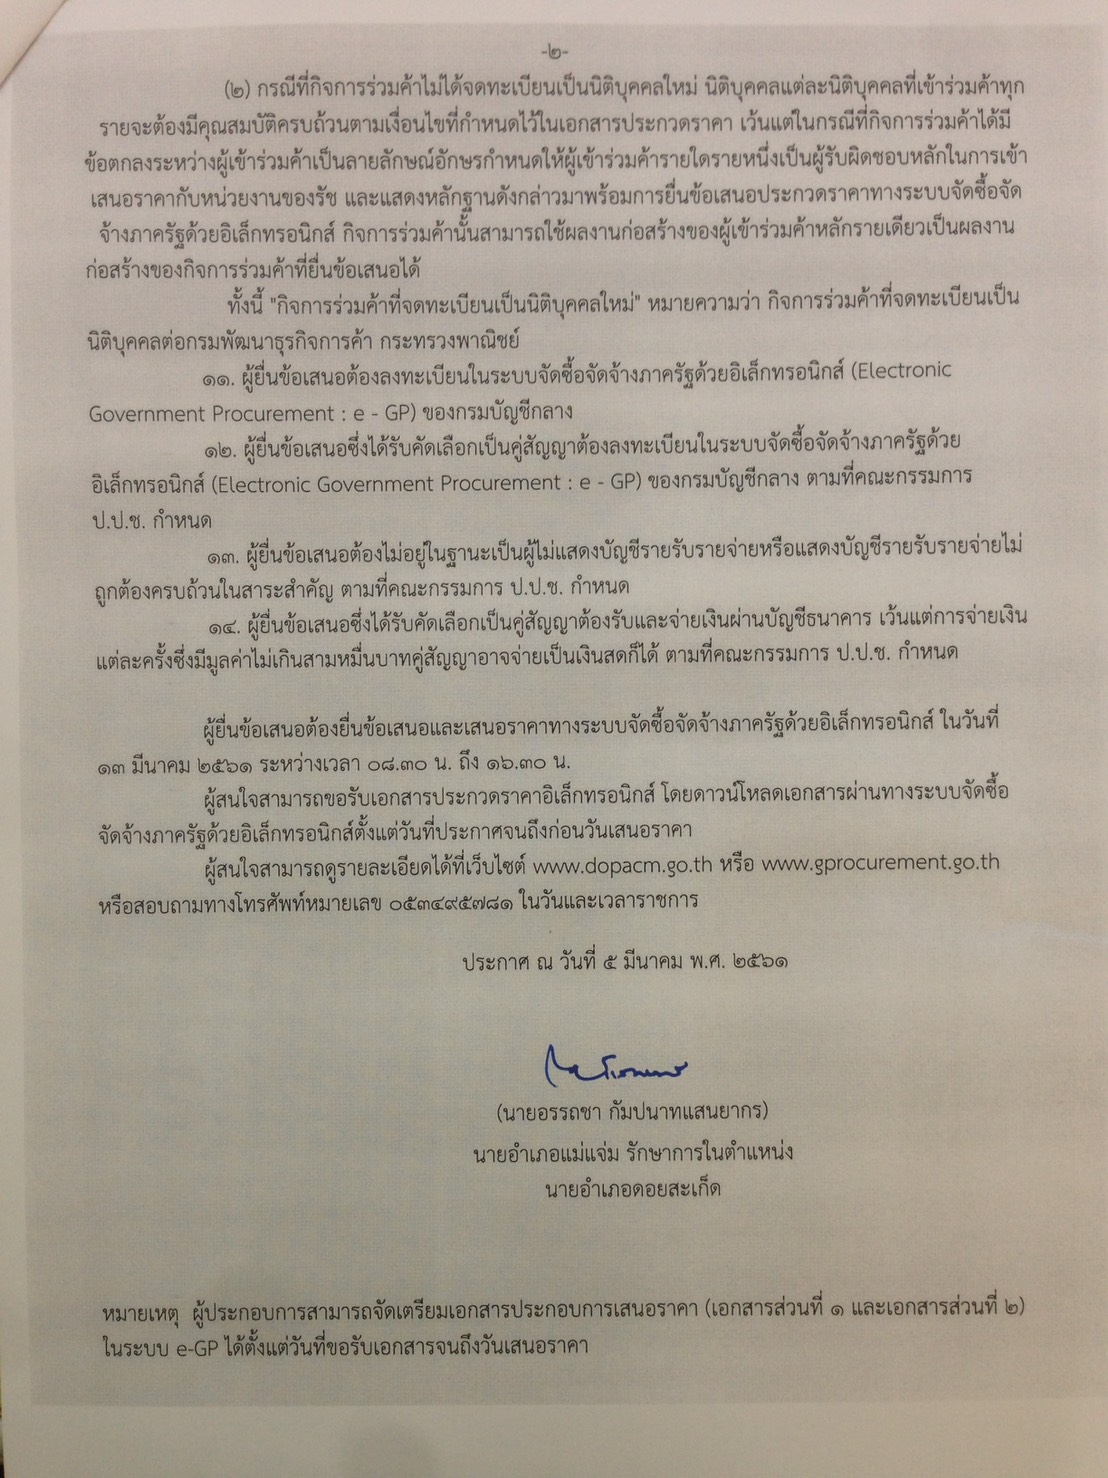 -๒-
(๒) กรณีที่กิจการร่วมค้าไม่ได้จดทะเบียนเป็นนิติบุคคลใหม่ นิติบุคคลแต่ละนิติบุคคลที่เข้าร่วมค้าทุก
รายจะต้องมีคุณสมบัติครบถ้วนตามเงื่อนไขที่กำหนดไว้ในเอกสารประกวดราคา เว้นแต่ในกรณีที่กิจการร่วมค้าได้มี
ข้อตกลงระหว่างผู้เข้าร่วมค้าเป็นลายลักษณ์อักษรกำหนดให้ผู้เข้าร่วมค้ารายใดรายหนึ่งเป็นผู้รับผิดชอบหลักในการเข้า
เสนอราคากับหน่วยงานของรัช และแสดงหลักฐานดังกล่าวมาพร้อมการยื่นข้อเสนอประกวดราคาทางระบบจัดซื้อจัด
จ้างภาครัฐด้วยอิเล็กทรอนิกส์ กิจการร่วมค้านั้นสามารถใช้ผลงานก่อสร้างของผู้เข้าร่วมค้าหลักรายเดียวเป็นผลงาน
ก่อสร้างของกิจการร่วมค้าที่ยื่นข้อเสนอได้
ทั้งนี้ "กิจการร่วมค้าที่จดทะเบียนเป็นนิติบุคคลใหม่" หมายความว่า กิจการร่วมค้าที่จดทะเบียนเป็น
นิติบุคคลต่อกรมพัฒนาธุรกิจการค้า กระทรวงพาณิชย์
๑๑. ผู้ยื่นข้อเสนอต้องลงทะเบียนในระบบจัดซื้อจัดจ้างภาครัฐด้วยอิเล็กทรอนิกส์ (Electronic
Government Procurement : e - GP) ของกรมบัญชีกลาง
๑๒. ผู้ยื่นข้อเสนอซึ่งได้รับคัดเลือกเป็นคู่สัญญาต้องลงทะเบียนในระบบจัดซื้อจัดจ้างภาครัฐด้วย
อิเล็กทรอนิกส์ (Electronic Government Procurement : e - GP) ของกรมบัญชีกลาง ตามที่คณะกรรมการ
ป.ป.ช. กำหนด
๑๓. ผู้ยื่นข้อเสนอต้องไม่อยู่ในฐานะเป็นผู้ไม่แสดงบัญชีรายรับรายจ่ายหรือแสดงบัญชีรายรับรายจ่ายไม่
ถูกต้องครบถ้วนในสาระสำคัญ ตามที่คณะกรรมการ ป.ป.ช. กำหนด
๑๔. ผู้ยื่นข้อเสนอซึ่งได้รับคัดเลือกเป็นคู่สัญญาต้องรับและจ่ายเงินผ่านบัญชีธนาคาร เว้นแต่การจ่ายเงิน
แต่ละครั้งซึ่งมีมูลค่าไม่เกินสามหมื่นบาทคู่สัญญาอาจจ่ายเป็นเงินสดก็ได้ ตามที่คณะกรรมการ ป.ป.ช. กำหนด
ผู้ยื่นข้อเสนอต้องยื่นข้อเสนอและเสนอราคาทางระบบจัดซื้อจัดจ้างภาครัฐด้วยอิเล็กทรอนิกส์ ในวันที่
๑๓ มีนาคม ๒๕๖๑ ระหว่างเวลา ๐๘.๓๐ น. ถึง ๑๖.๓๐ น.
ผู้สนใจสามารถขอรับเอกสารประกวดราคาอิเล็กทรอนิกส์ โดยดาวน์โหลดเอกสารผ่านทางระบบจัดซื้อ
จัดจ้างภาครัฐด้วยอิเล็กทรอนิกส์ตั้งแต่วันที่ประกาศจนถึงก่อนวันเสนอราคา
ผู้สนใจสามารถดูรายละเอียดได้ที่เว็บไซต์ www.dopacm.go.th หรือ www.gprocurement.go.th
หรือสอบถามทางโทรศัพท์หมายเลข ๐๕๓๔๙๕๗๘๑ ในวันและเวลาราชการ
ประกาศ ณ วันที่ ๕ มีนาคม พ.ศ. ๒๕๖๑
(นายอรรถชา กัมปนาทแสนยากร)
นายอำเภอแม่แจ่ม รักษาการในตำแหน่ง
นายอำเภอดอยสะเก็ด
หมายเหตุ ผู้ประกอบการสามารถจัดเตรียมเอกสารประกอบการเสนอราคา (เอกสารส่วนที่ ๑ และเอกสารส่วนที่ ๒)
ในระบบ e-GP ได้ตั้งแต่วันที่ขอรับเอกสารจนถึงวันเสนอราคา